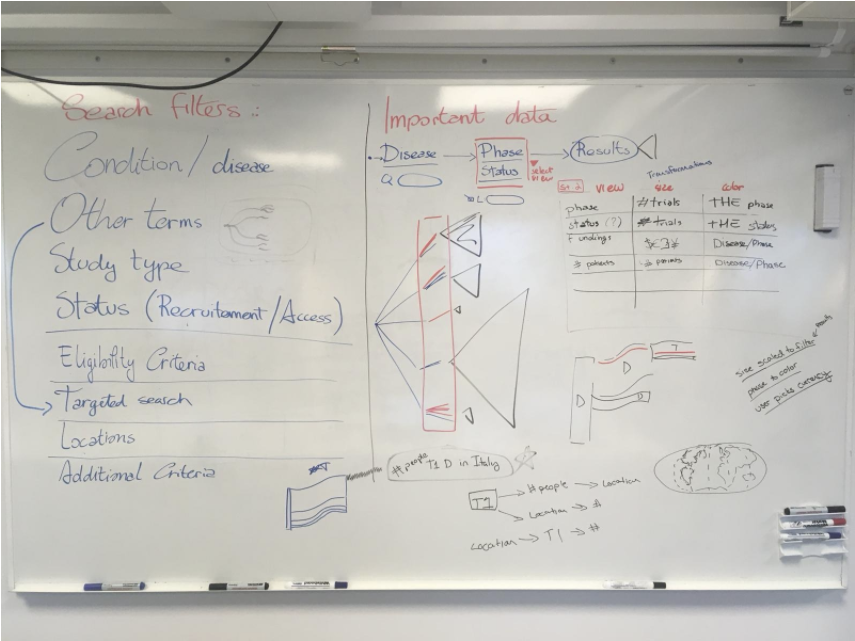 Search filters :
Condition / disease
Other terms
Study type
Status (Recruitement / Access)
Eligibility Criteria
Targeted search
Locations
Additional Criteria
Important data
Disease
Phase
Status
Results
select view
Transformations
VIEW size color
phase # trials THE phase
status (?) # trials THE status
fundings Disease/Phase
patients Disease/Phase
size scaled to filter
phase to color
user picks currency
D
D
D
# people T1 D in Italy
T1
# people → Location
Location → #
Location → T1 → #